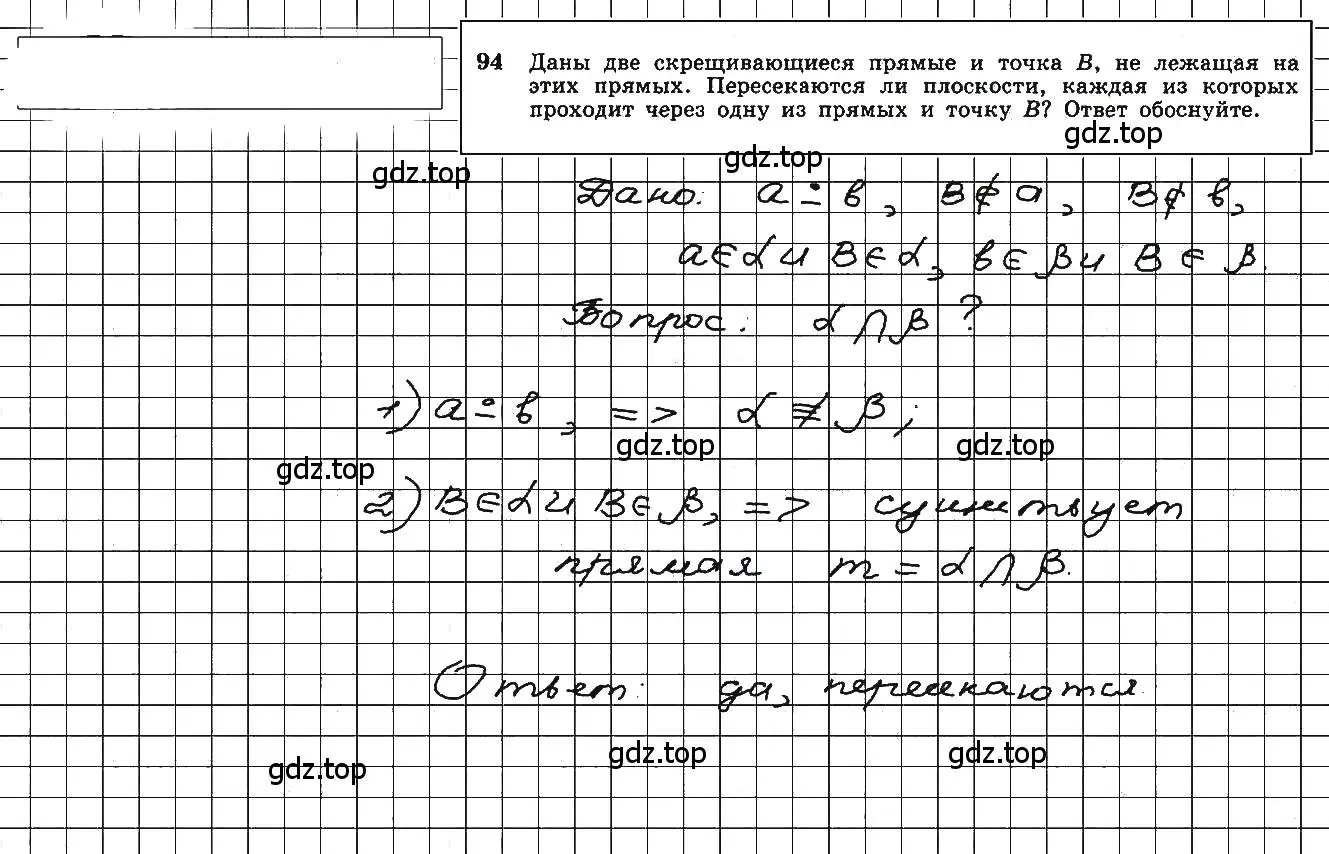 94 Даны две скрещивающиеся прямые и точка B, не лежащая на
этих прямых. Пересекаются ли плоскости, каждая из которых
проходит через одну из прямых и точку B? Ответ обоснуйте.
gdz.top
gdz.top
gdz.top
Дано: a ∸ b, B∉a, B∉b,
a∈α и B∈α, b∈β и B∈β.
Вопрос: α∩β?
1) a ∸ b, => α ≢ β;
gdz.top
gdz.top
gdz.top
2) B∈α и B∈β, => существует
прямая m = α∩β.
Ответ: да, пересекаются.
gdz.top
gdz.top
gdz.top